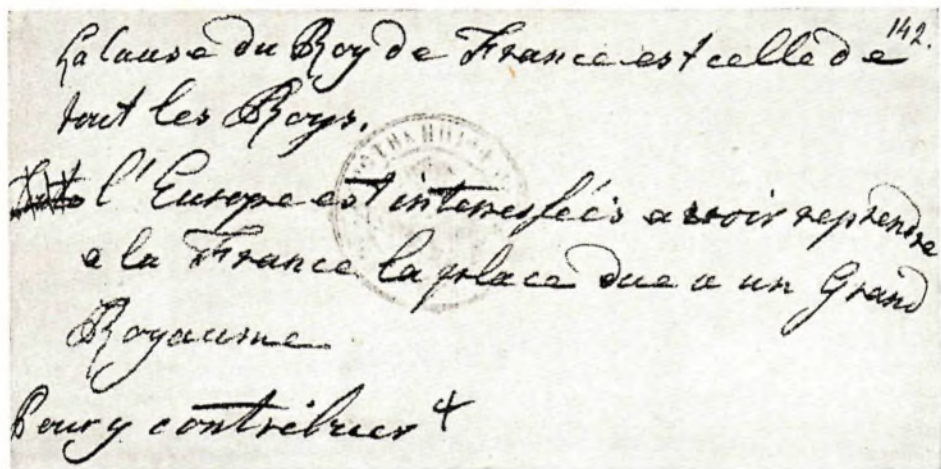 142.
La Cause du Roy de France est celle de
tout les Roys.
l'Europe est interressées a voir reprendre
a la France la place due a un Grand
Royaume
Pour y contribuer +